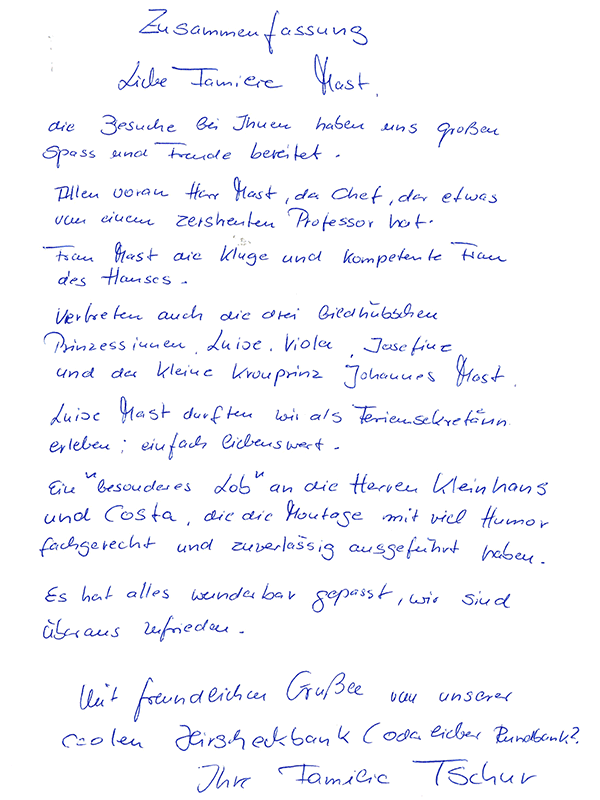 Zusammenfassung
Liebe Familie Mast,
die Besuche bei Ihnen haben uns großen
Spass und Freude bereitet.
Allen voran Herr Mast, der Chef, der etwas
von einem zerstreuten Professor hat.
Frau Mast die kluge und kompetente Frau
des Hauses.
Vertreten auch die drei bildhübschen
Prinzessinnen, Luise, Viola, Josefine
und der kleine Kronprinz Johannes Mast.
Luise Mast durften wir als Feriensekretärin
erleben; einfach liebenswert.
Ein "besonderes Lob" an die Herren Kleinhans
und Costa, die die Montage mit viel Humor
fachgerecht und zuverlässig ausgeführt haben.
Es hat alles wunderbar gepasst, wir sind
überaus zufrieden.
Mit freundlichen Grüßen von unserer
coolen Hirscheckbank (oder lieber Rundbank?
Ihre Familie Tschur